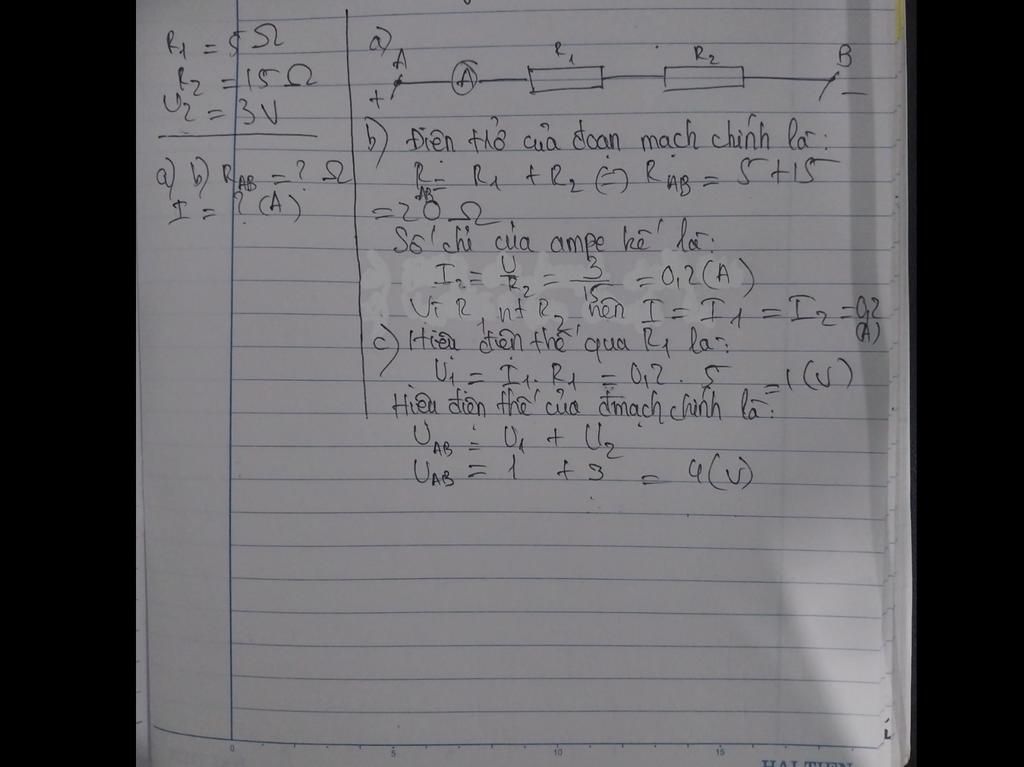 R1 = 5 Ω
R2 = 15 Ω
U2 = 3V
a) b) RAB = ? Ω
I = ? (A)
a)
A A R1 R2 B
+ −
b) Điện thở của đoạn mạch chính là:
RAB = R1 + R2 (=) RAB = 5 + 15
= 20 Ω
Số chỉ của ampe kế là:
I2 = U/R2 = 3/15 = 0,2 (A)
Vì R1 nt R2 nên I = I1 = I2 = 0,2 (A)
c) Hiệu điện thế qua R1 là:
U1 = I1. R1 = 0,2 . 5 = 1 (V)
Hiệu điện thế của đmạch chính là:
UAB = U1 + U2
UAB = 1 + 3 = 4 (V)
0 5 10 15
HẢI TIẾN